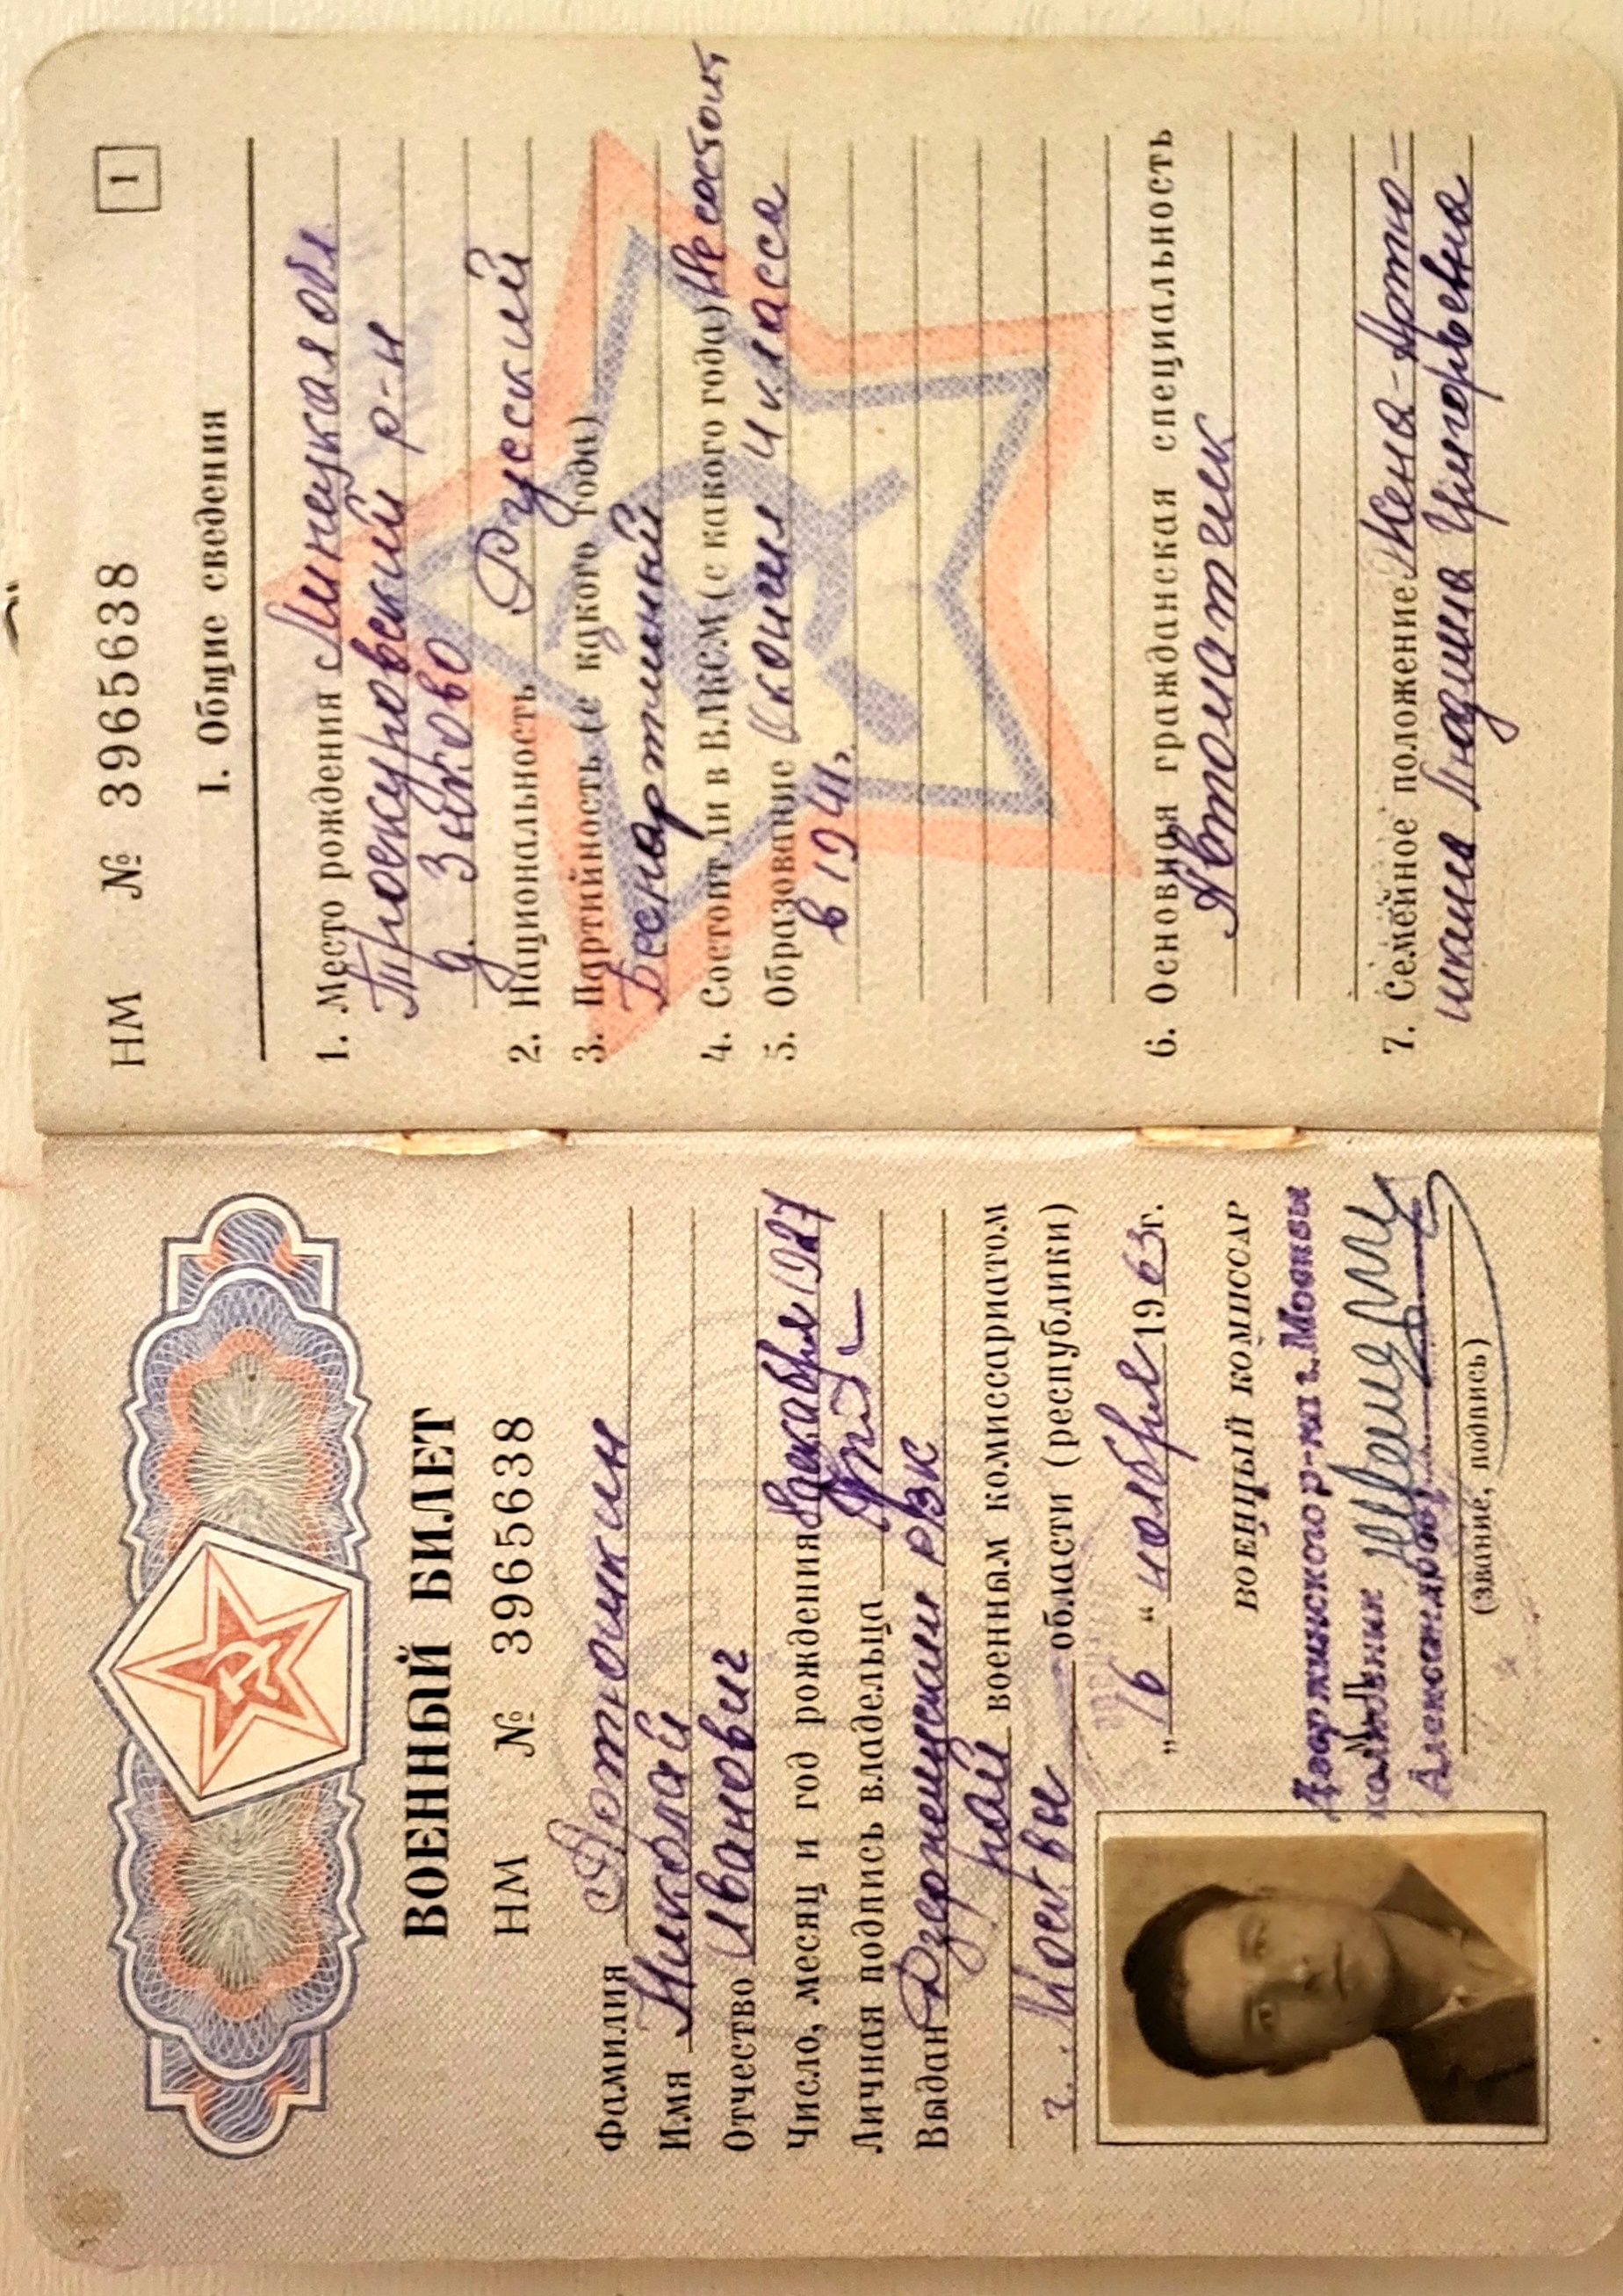 ВОЕННЫЙ БИЛЕТ
НМ № 3965638
Фамилия Артюшкин
Имя Николай
Отчество Иванович
Число, месяц и год рождения декабря 1927
Личная подпись владельца
Выдан Дзержинским РВК
рай военным комиссариатом
г. Москвы области (республики)
„16“ ноября 1963г.
ВОЕННЫЙ КОМИССАР
Дзержинского р-на г. Москвы
(звание, подпись)
НМ № 3965638
1
I. Общие сведения
1. Место рождения Липецкая обл
Троекуровский р-н
д. Зыково
2. Национальность Русский
3. Партийность (с какого года)
Беспартийный
4. Состоит ли в ВЛКСМ (с какого года) Не состоит
5. Образование Окончил 4 класса
в 1941г.
6. Основная гражданская специальность
Автоматчик
7. Семейное положение Жена-Артю-
шкина Григорьевна